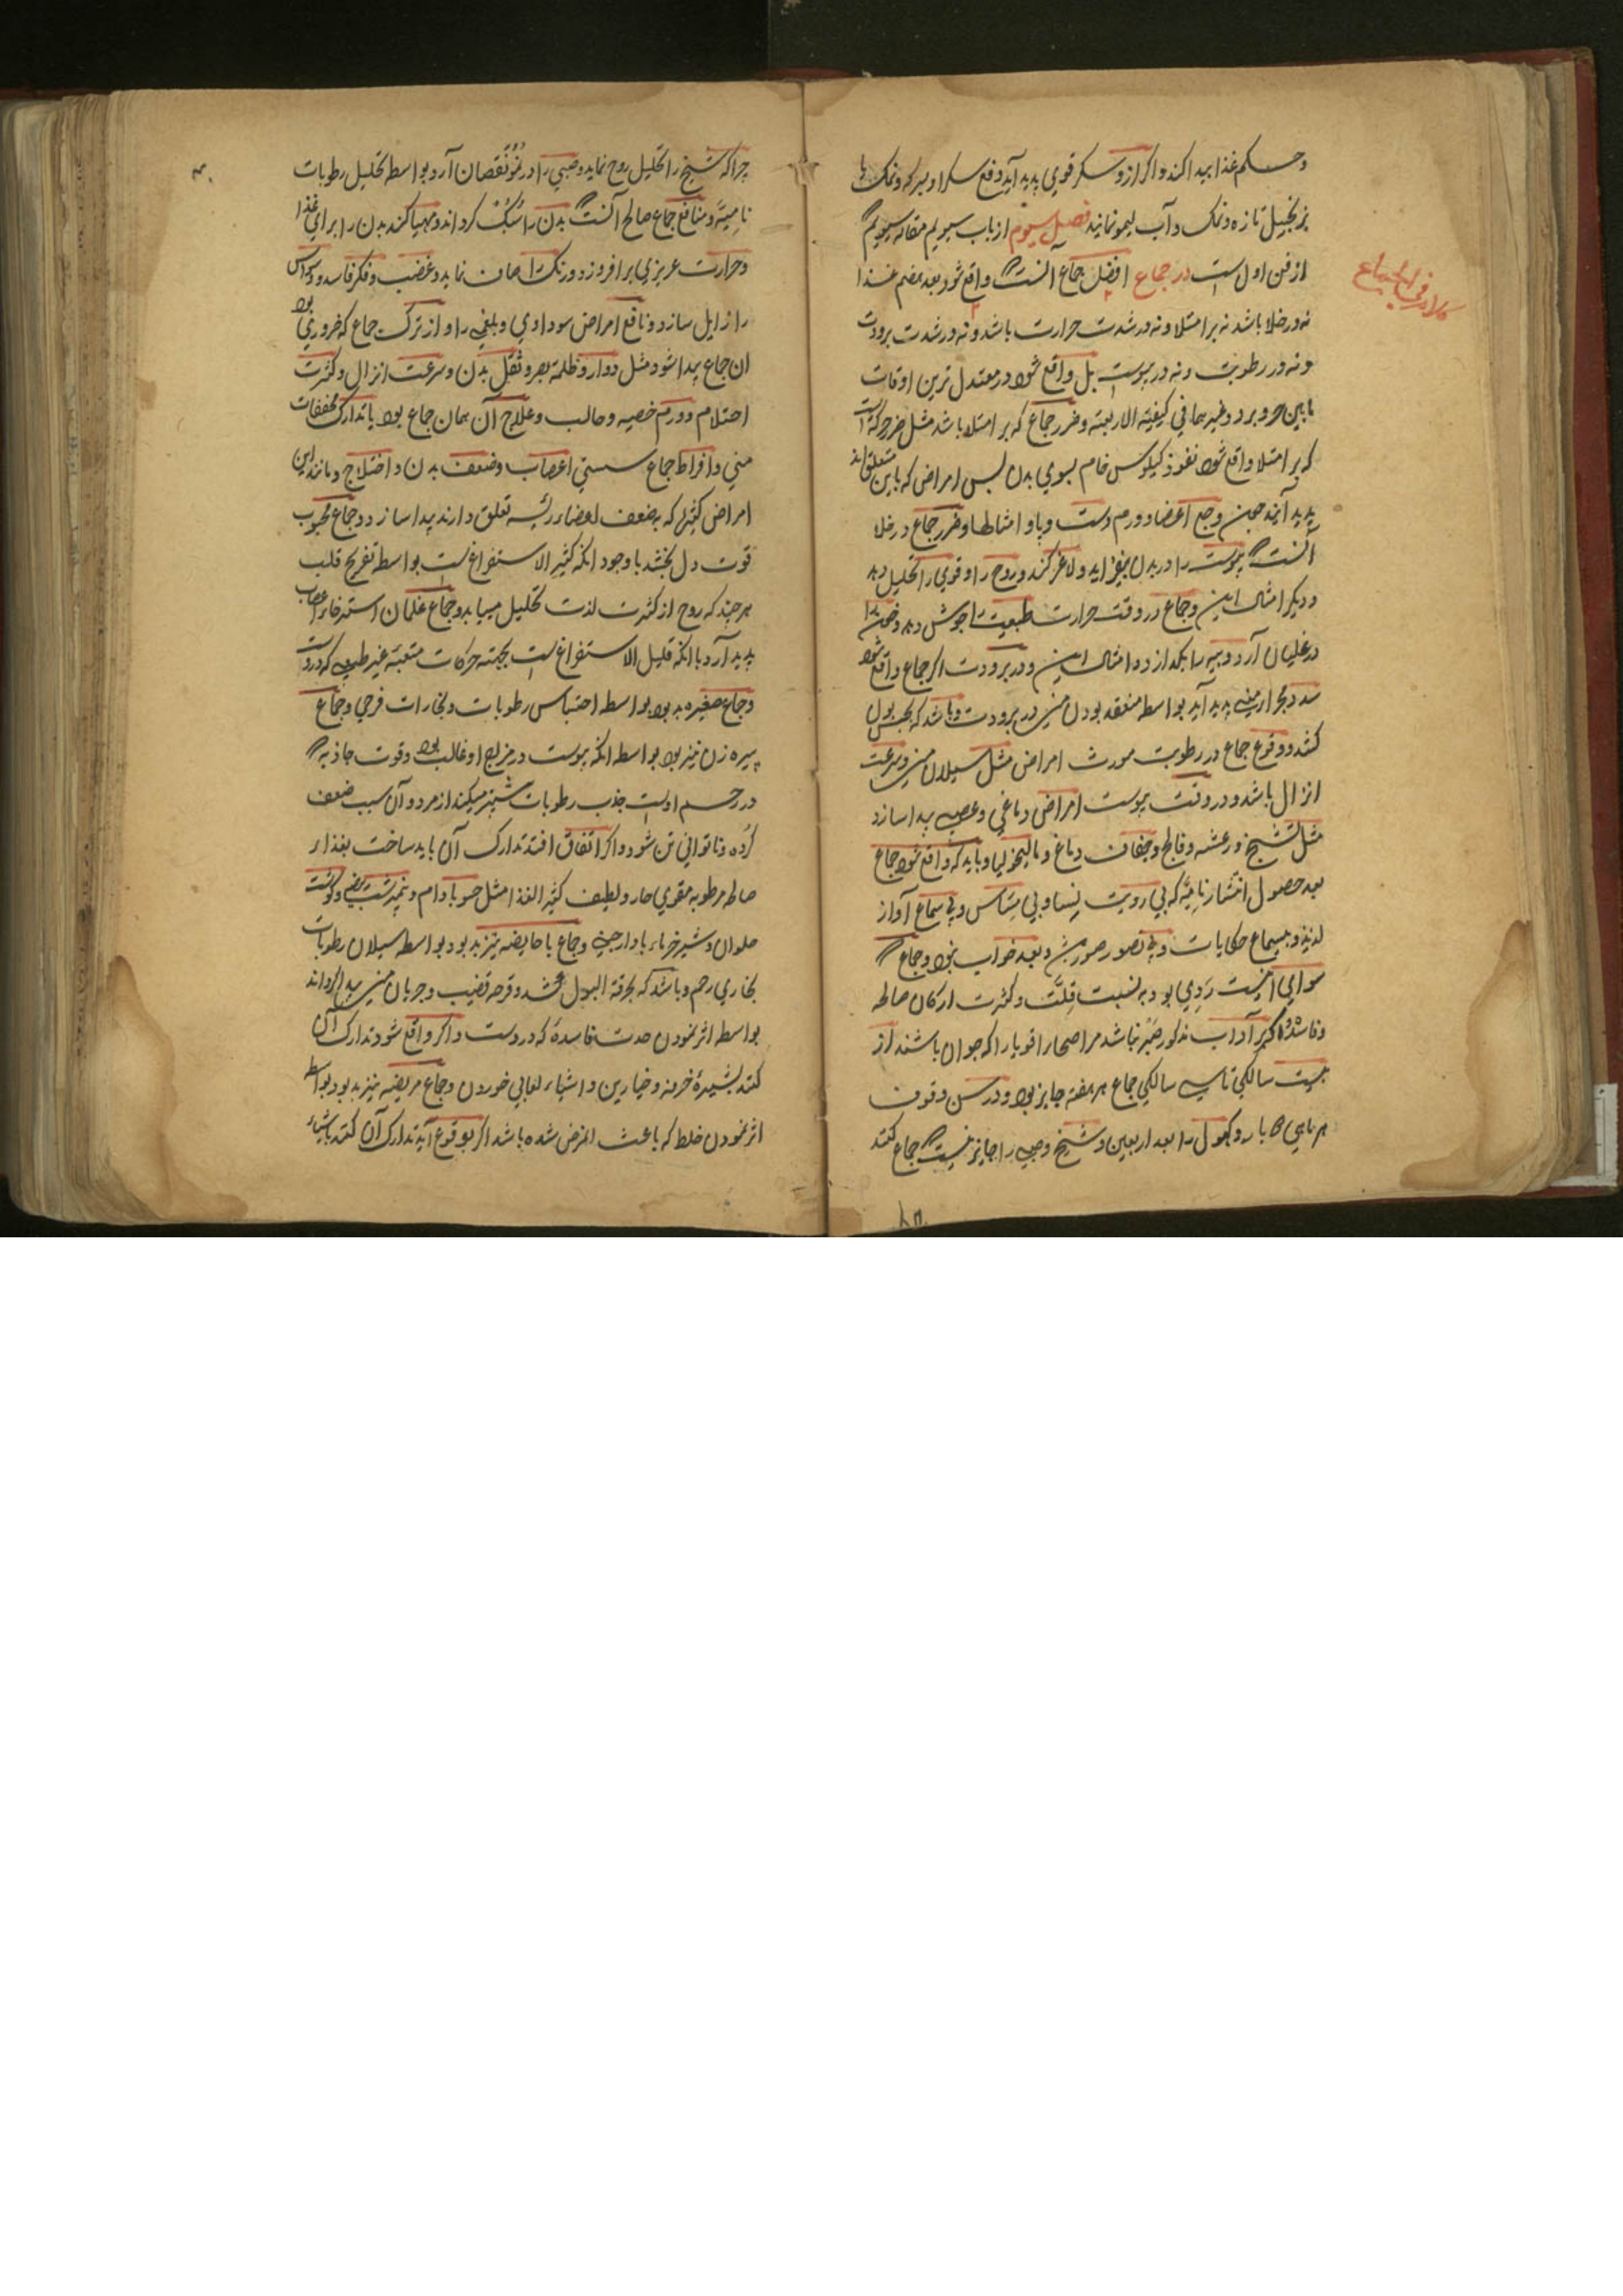 وحکم غذا پیدا کند و اگر ازو سکر قوی پدید آید دفع سکر او بسرکه و نمک با
زنجبیل تازه و نمک و آب لیمو نمایند فصل سیوم از باب سیویم مقاله سیویم
از فن اول است در جماع افضل جماع آنست که واقع شود بعد هضم غذا
کلام فی الجماع
نه در خلا باشد نه بر امتلا و نه در شدت حرارت باشد و نه در شدت برودت
و نه در رطوبت و نه در یبوست بل واقع شود در معتدل ترین اوقات
ما بین حر و برد و غیرهما فی کیفیة الاربعة و ضرر جماع که بر امتلا باشد مثل ضرر حرکة است
که بر امتلا واقع شود نفوذ کیلوس خام بسوی بدن پس امراض که باین متعلق اند
پدید آیند چون وجع اعضا و ورم دست و پا و امثالها و ضرر جماع در خلا
آنست که یبوست را در بدن بیفزاید و لاغر کند و روح را و قوی را تحلیل دهد
و دیگر امثال این و جماع در وقت حرارت طبیعت را جوش دهد و خون را
در غلیان آرد و پیه را بگدازد و امثال این و در برودت اگر جماع واقع شود
سدد مجرا منی پدید آید بواسطه منعقد بودن منی در برودت و باشد که حبس بول
کند و وقوع جماع در رطوبت مورث امراض مثل سیلان منی و سرعت
انزال باشد و در وقت یبوست امراض دماغی و عصبی پیدا سازد
مثل تشنج و رعشه و فالج و جفاف دماغ و مالیخولیا و باید که واقع شود جماع
بعد حصول انتشار تامه که بی رویت نسا و بی مساس و بی سماع آواز
لذیذ و بسماع حکایات و بی تصور صورتش و بعد خواب بود و جماع که
سوای اینست ردی بود به نسبت قلت و کثرت ارکان صالحه
و فاسده و اکثر آداب مذکور ضرر نباشد مر اصحا و اقویا را که جوان باشند از
بیست سالگی تا سی سالگی جماع هر هفته جایز بود و در سن وقوف
هر ماهی بار و کهول را بعد اربعین و شیخ و صبی را جایز نیست که جماع کنند
چرا که شیخ را تحلیل روح نماید و صبی را در نمو نقصان آرد بواسطه تحلیل رطوبات
نامیه و منافع جماع صالح آنست که بدن را سبک گرداند و مهیا کند بدن را برای غذا
و حرارت غریزی برافروزد و رنگ را صاف نماید و غضب و فکر فاسد و وسواس
را زایل سازد و نافع امراض سوداوی و بلغمی را و از ترک جماع که ضروری بود
ان جماع پیدا شود مثل دوار و ظلمة بصر و ثقل بدن و سرعت انزال و کثرت
احتلام و ورم خصیه و حالب و علاج آن همان جماع بود با تدارک مجففات
منی و افراط جماع سستی اعصاب و ضعف بدن و اختلاج و مانند این
امراض کثیر که بضعف اعضاء رئیسه تعلق دارند پیدا سازد و جماع محبوب
قوت دل بخشد با وجود انکه کثیر الاستفراغ است بواسطه تفریح قلب
هر چند که روح از کثرت لذت تحلیل میابد و جماع غلمان استرخاء اعصاب
پدید آرد با انکه قلیل الاستفراغ است بجهته حرکات متعبه غیر طبیعی که در وست
و جماع صغیره بد بود بواسطه احتباس رطوبات و بخارات فرجی و جماع
پیره زن نیز بود بواسطه انکه یبوست در مزاج او غالب بود و قوت جاذبه که
در رحم اوست جذب رطوبات بیشتر میکند از مرد و آن سبب ضعف
گرده و ناتوانی تن شود و اگر اتفاق افتد تدارک آن باید ساخت بغذاء
صالحه مرطوبه مقوی حار و لطیف کثیر الغذا مثل حسو بادام و نیمبرشت بیضه و گوشت
حلوان و شیر خرما با دارچینی و جماع با حایضه نیز بد بود بواسطه سیلان رطوبات
بخاری رحم و باشد که حرقة البول بخشد و قرحه قضیب و جریان منی پیدا گرداند
بواسطه اثر نمودن حدت فاسده که دروست و اگر واقع شود تدارک آن
کند بشیره خرفه و خیارین و اشیاء لعابی خوردن و جماع مریضه نیز بد بود بواسطه
اثر نمودن خلط که باعث المرض شده باشد اگر بوقوع آید تدارک آن کند باشیاء